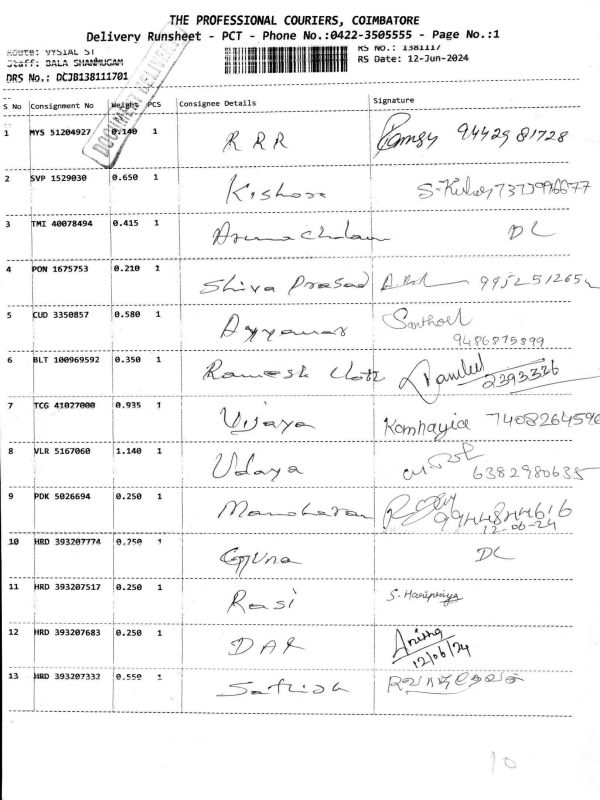 THE PROFESSIONAL COURIERS, COIMBATORE
Delivery Runsheet - PCT - Phone No.:0422-3505555 - Page No.:1
Route: VYSIAL ST
RS No.: 1381117
Staff: BALA SHANMUGAM
RS Date: 12-Jun-2024
DRS No.: DCJB138111701
DOCUMENT DELIVERY
S No Consignment No Weight PCS Consignee Details Signature
1 MYS 51204927 0.140 1 RRR 94429 81728
2 SVP 1529030 0.650 1 Kishore
3 TMI 40078494 0.415 1 Arunachalam DL
4 PON 1675753 0.210 1 Shiva Prasad
5 CUD 3350857 0.580 1 Ayyanar Santhosh
9486875899
6 BLT 100969592 0.350 1 Ramesh
2393326
7 TCG 41027000 0.935 1 Vijaya Kamhayia 7408264596
8 VLR 5167060 1.140 1 Udaya 6382980635
9 PDK 5026694 0.250 1 Manoharan 9944844616
12-06-24
10 HRD 393207774 0.250 1 Guna DL
11 HRD 393207517 0.250 1 Rasi S. Haripriya
12 HRD 393207683 0.250 1 DAR
12/06/24
13 HRD 393207332 0.550 1 Sathish
10